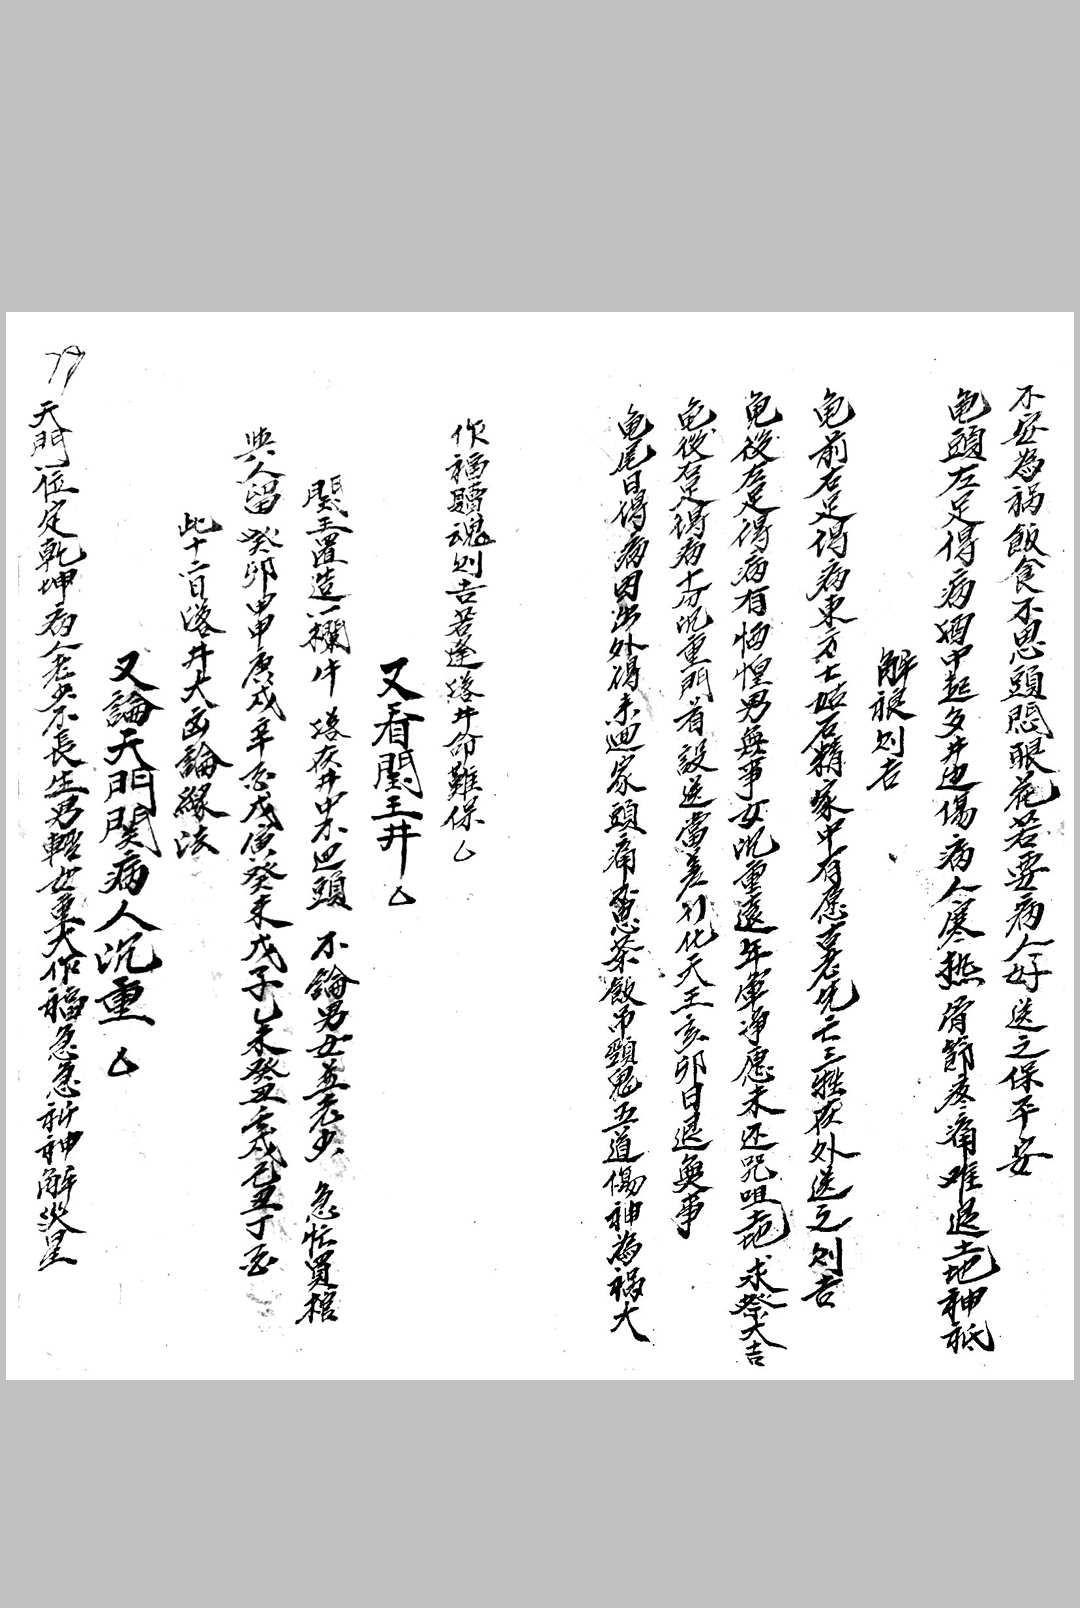 不安為禍飯食不思頭悶眼花若要病人好送之保平安
龟頭左足得病酒中起多井边傷病人寒熱骨節疼痛难退土地神祇
解禳则吉
龟前右足得病東方七姑石精家中有愿古老先亡三牲夜外送之则吉
龟後左足得病有恓惶男無事女沉重遠年軍净愿未还咒咀土地求祭大吉
龟後右足得病十分沉重門首設送當差引化天王亥卯日退無事
龟尾日得病因出外得未迴家頭痛思茶飯吊頸鬼五道傷神為禍大
作福贖魂则吉若逢落井命難保
又看閻王井
閻王置造一欄牛 落在井中不迴頭 不論男女並老少 急忙買棺
與人留 癸卯甲申庚戌辛亥戊寅癸未戊子乙未癸丑壬戌己丑丁亥
此十二日落井大凶論緣法
又論天門関病人沉重
天門位定乾坤病人老少不長生男輕女重大作福急急祈神解災星